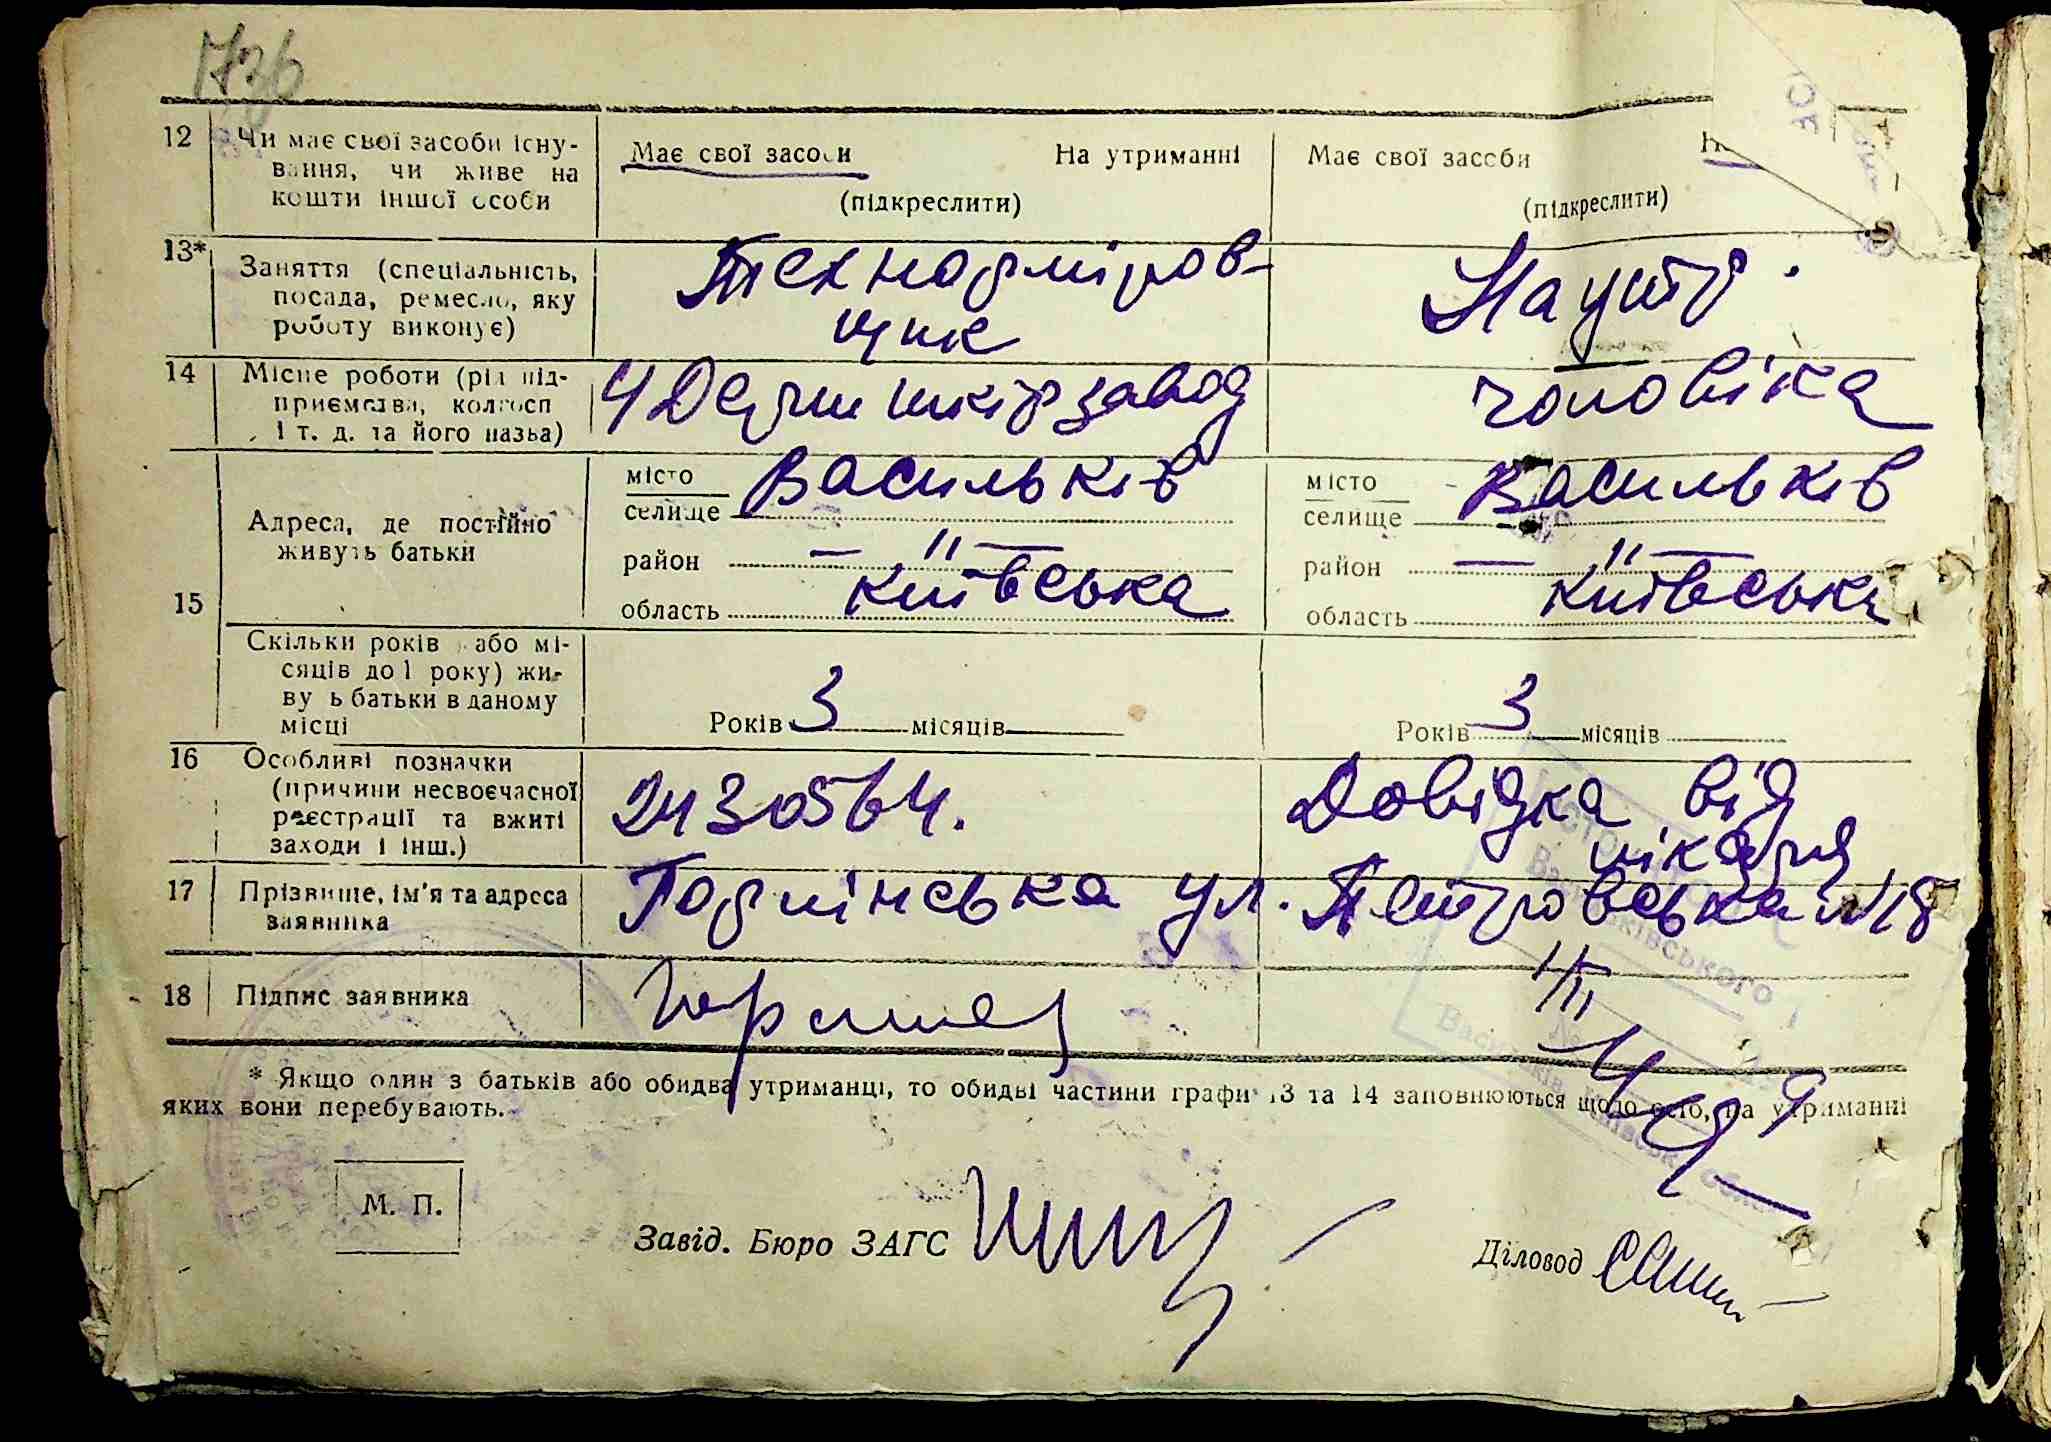 736
12 Чи має свої засоби існу- Має свої засоби На утриманні Має свої засоби
вання, чи живе на
кошти іншої особи (підкреслити) (підкреслити)
13* Заняття (спеціальність, Технорміров-
посада, ремесло, яку
роботу виконує) щик
14 Місце роботи (рід під- 4 Держ шкірзавод чоловіка
приємства, колгосп
і т. д. та його назва)
місто Васильків місто Васильків
Адреса, де постійно селище селище
живуть батьки район — " — район — " —
15 область Київська область Київська
Скільки років або мі-
сяців до 1 року) жи-
вуть батьки в даному
місці Років 3 місяців Років 3 місяців
16 Особливі позначки Довідка від
(причини несвоєчасної 2430564.
реєстрації та вжиті лікаря
заходи і інш.)
17 Прізвище, ім'я та адреса ул. Петровська №18
заявника
18 Підпис заявника
* Якщо один з батьків або обидва утриманці, то обидві частини графи 13 та 14 заповнюються щодо того, на утриманні
яких вони перебувають.
М. П.
Завід. Бюро ЗАГС Діловод